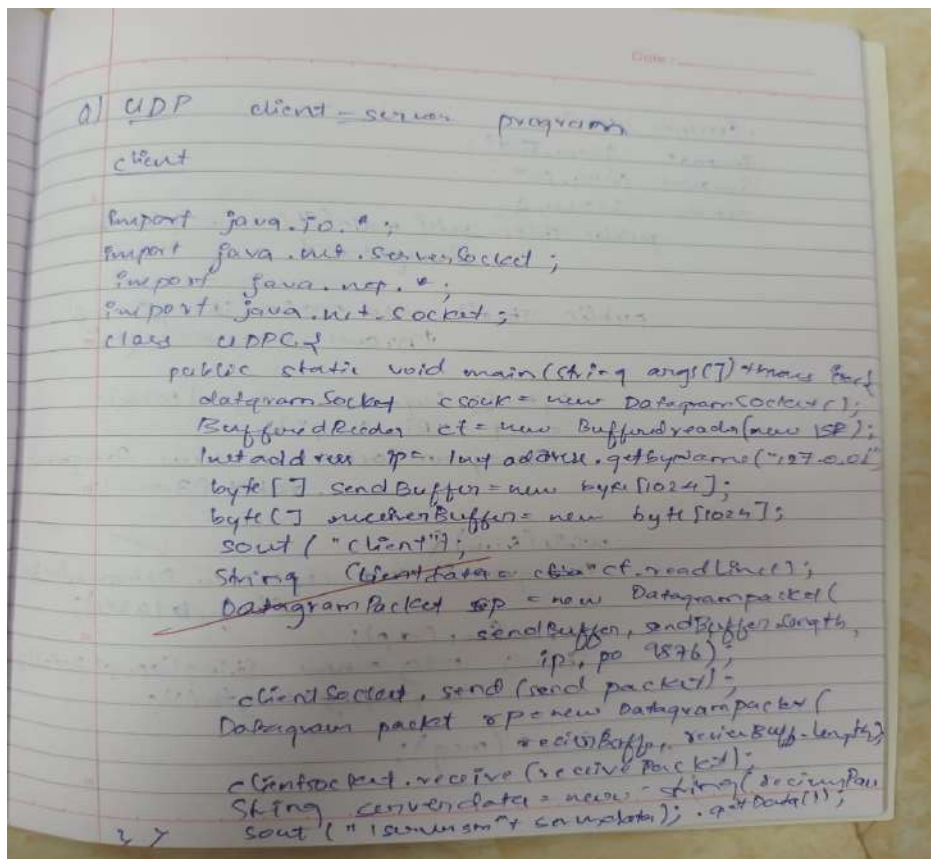 Date :
a) UDP client - server program
client
import java.io.*;
import java.net.ServerSocket;
import java.net.*;
import java.net.Socket;
class UDPC{
public static void main(String args[])
datagramSocket csock = new DatagramSocket();
BufferedReader cf = new Bufferedreader(new ISR);
Inetaddress ip = Inetaddress.getByName("127.0.01"
byte [] sendBuffer = new byte [1024];
byte [] receiverBuffer = new byte [1024];
sout ("client");
String clientdata = cf.readLine();
DatagramPacket sp = new Datagrampacket(
sendBuffer, sendBuffer.length,
ip, po 9876);
clientSocket.send (send packet);
Datagram packet rp = new Datagrampacket(
length);
clientsocket.receive (receive Packet);
String serverdata = new String(
sout (" + serverdata); .getData());
} }